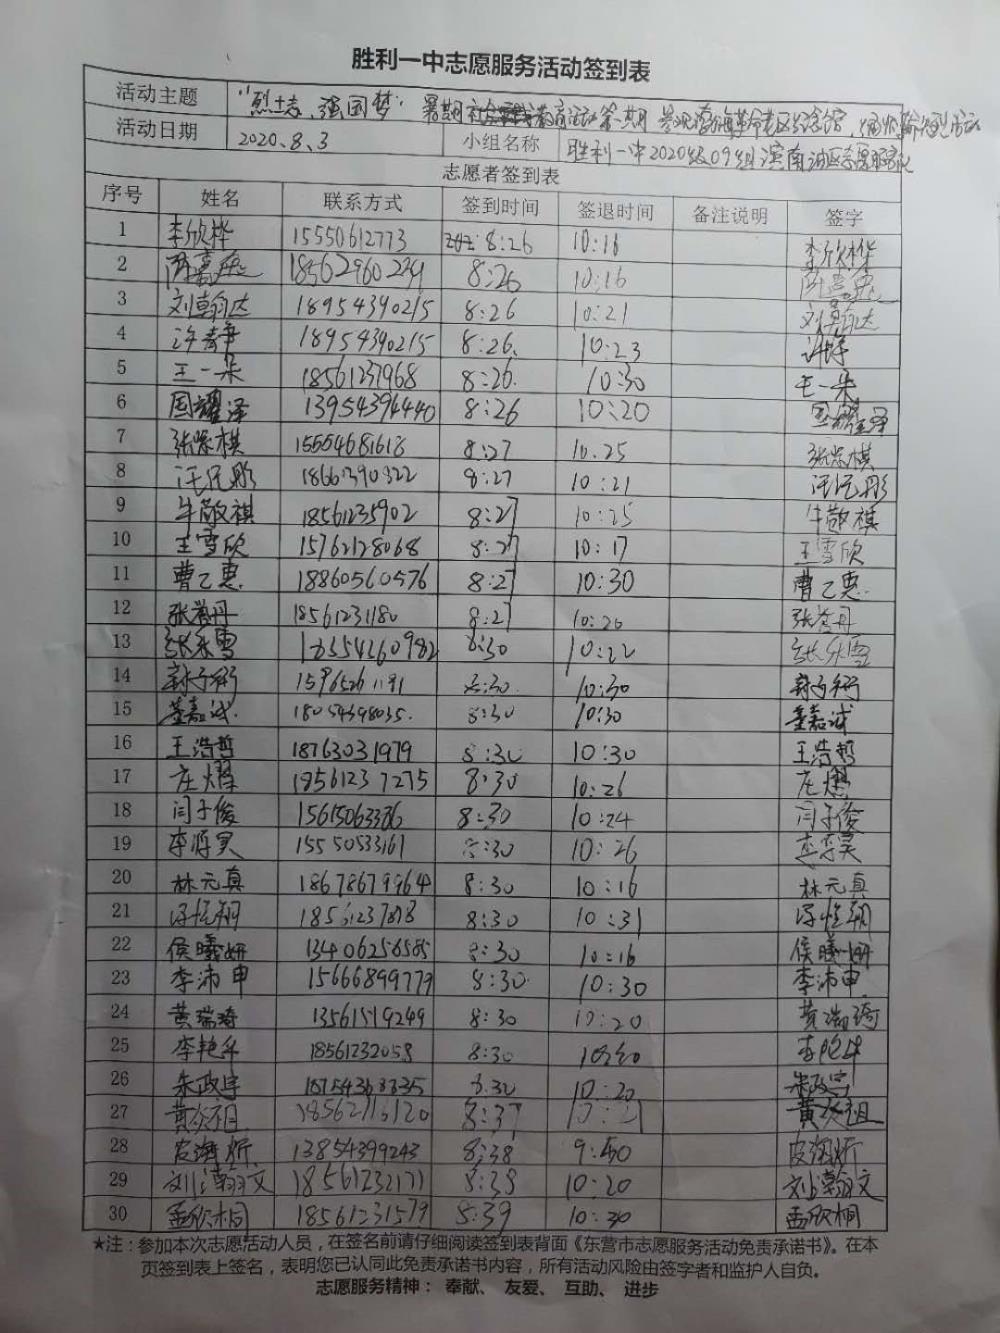 胜利一中志愿服务活动签到表
活动主题 "烈士志,强国梦" 暑期 教育活动第一期
活动日期 2020.8.3 小组名称 胜利一中2020级09组滨南油区志愿服务队
志愿者签到表
序号 姓名 联系方式 签到时间 签退时间 备注说明 签字
1 李欣桦 15550612773 8:26 10:16 李欣桦
2 8:26 10:16
3 刘翰达 18954390215 8:26 10:21 刘翰达
4 许静 18954390215 8:26. 10:23 许静
5 王一朵 18561237968 8:26. 10:30 王一朵
6 国耀泽 13954396440 8:26 10:20 国耀泽
7 棋 15554681618 8:27 10.25 棋
8 汪沅彤 18661390322 8:27 10:21 汪沅彤
9 牛敬祺 18561235902 8:27 10:25 牛敬祺
10 王雪欣 15762128068 8:27 10:17 王雪欣
11 曹乙惠 18860560576 8:27 10:30 曹乙惠
12 张誉丹 18561231180 8:27 10:20 张誉丹
13 雪 8:30 10:22 雪
14 8:30. 10:30
15 董嘉诚. 18054398035. 8:30 10:30 董嘉诚
16 王浩哲 18763031979 8:30 10:30 王浩哲
17 庄熠 18561237275 8:30 10:26 庄熠
18 闫子俊 15615063386 8:30 10:24 闫子俊
19 15550533161 8:30 10:26
20 林元真 18678679964 8:30 10:16 林元真
21 8:30 10:31
22 侯曦妍 13406256585 8:30 10:16 侯曦妍
23 李沛申 15666899779 8:30 10:30 李沛申
24 黄瑞琦 13561519249 8:30 10:20 黄瑞琦
25 李艳华 18561232058 8:30
26 朱政宇 18754363335 8:30 10:20 朱政宇
27 黄焱祖 8:37 黄焱祖
28 13854399243 8:38 9:50
29 刘瀚文 18561232171 8:38 10:20 刘瀚文
30 孟欣桐 18561231579 8:39 10:30 孟欣桐
★注:参加本次志愿活动人员,在签名前请仔细阅读签到表背面《东营市志愿服务活动免责承诺书》。在本
页签到表上签名,表明您已认同此免责承诺书内容,所有活动风险由签字者和监护人自负。
志愿服务精神: 奉献、 友爱、 互助、 进步